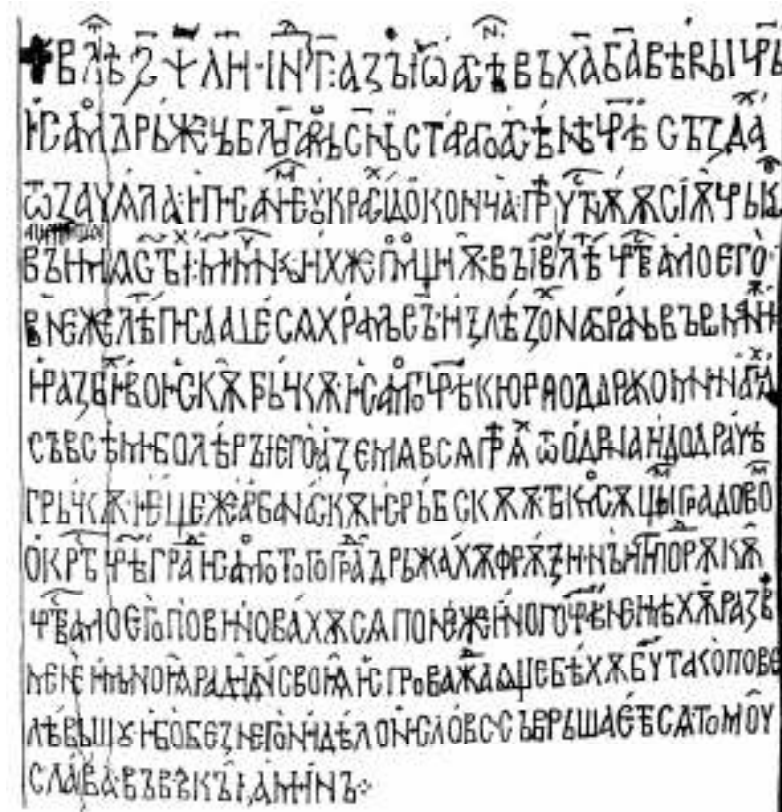 ✝ влѣ ҂ѕ ѱ л҃и· інⷣ г҃: азъ іѡ асѣⷩ въ х҃а б҃а вѣрны цр҃ь
и саⷨдрьжець блъгаⷬмь сн҃ь стараго асѣнѣ цр҃ѣ създаⷯ
ѿ зачѧла· и писаниеⷨ ѹкрасиⷯ до конча прѣчⷭтнѫѫ сіѫ црькоⷡ
въ имѧ ст҃ыⷯ· м҃ мⷱ҇никъ· ихже помощиѫ въ і҃в лѣⷮ црⷭ҇тва моего·
в неже лѣⷮ писааше сѧ храмь съ· излѣзоⷯ на брань въ рѡманиѫ
и разбиⷯ воискѫ грьчкѫ· и самоⷢ цр҃ѣ кюр тодора комнина ѧⷯ
съ всѣми болѣры его· а землѧ всѧ прѣѧⷯ ѿ одрина и до драчѣ
грьчкѫ· и еще же арбанаскѫ и срьбскѫѫ тъкмⷪ сѫщыⷨ градовоⷨ
окрⷭть цр҃ѣграⷣ и самоⷢ того граⷣ дрьжахѫ фрѫзи· нъ и ти поⷣ рѫкѫ
црⷭ҇тва моего повиновахѫ сѧ понеже иного цр҃ѣ не имѣхѫ развⷺ
мене и мноѧ ради дни своѧ испроваждаще бѣхѫ б҃ꙋ тако пове
лѣвьшꙋ· ибо без него ни дѣло ни слово съврьшаеⷮ сѧ томоу
слава· въ вѣкы, аминъ⁘